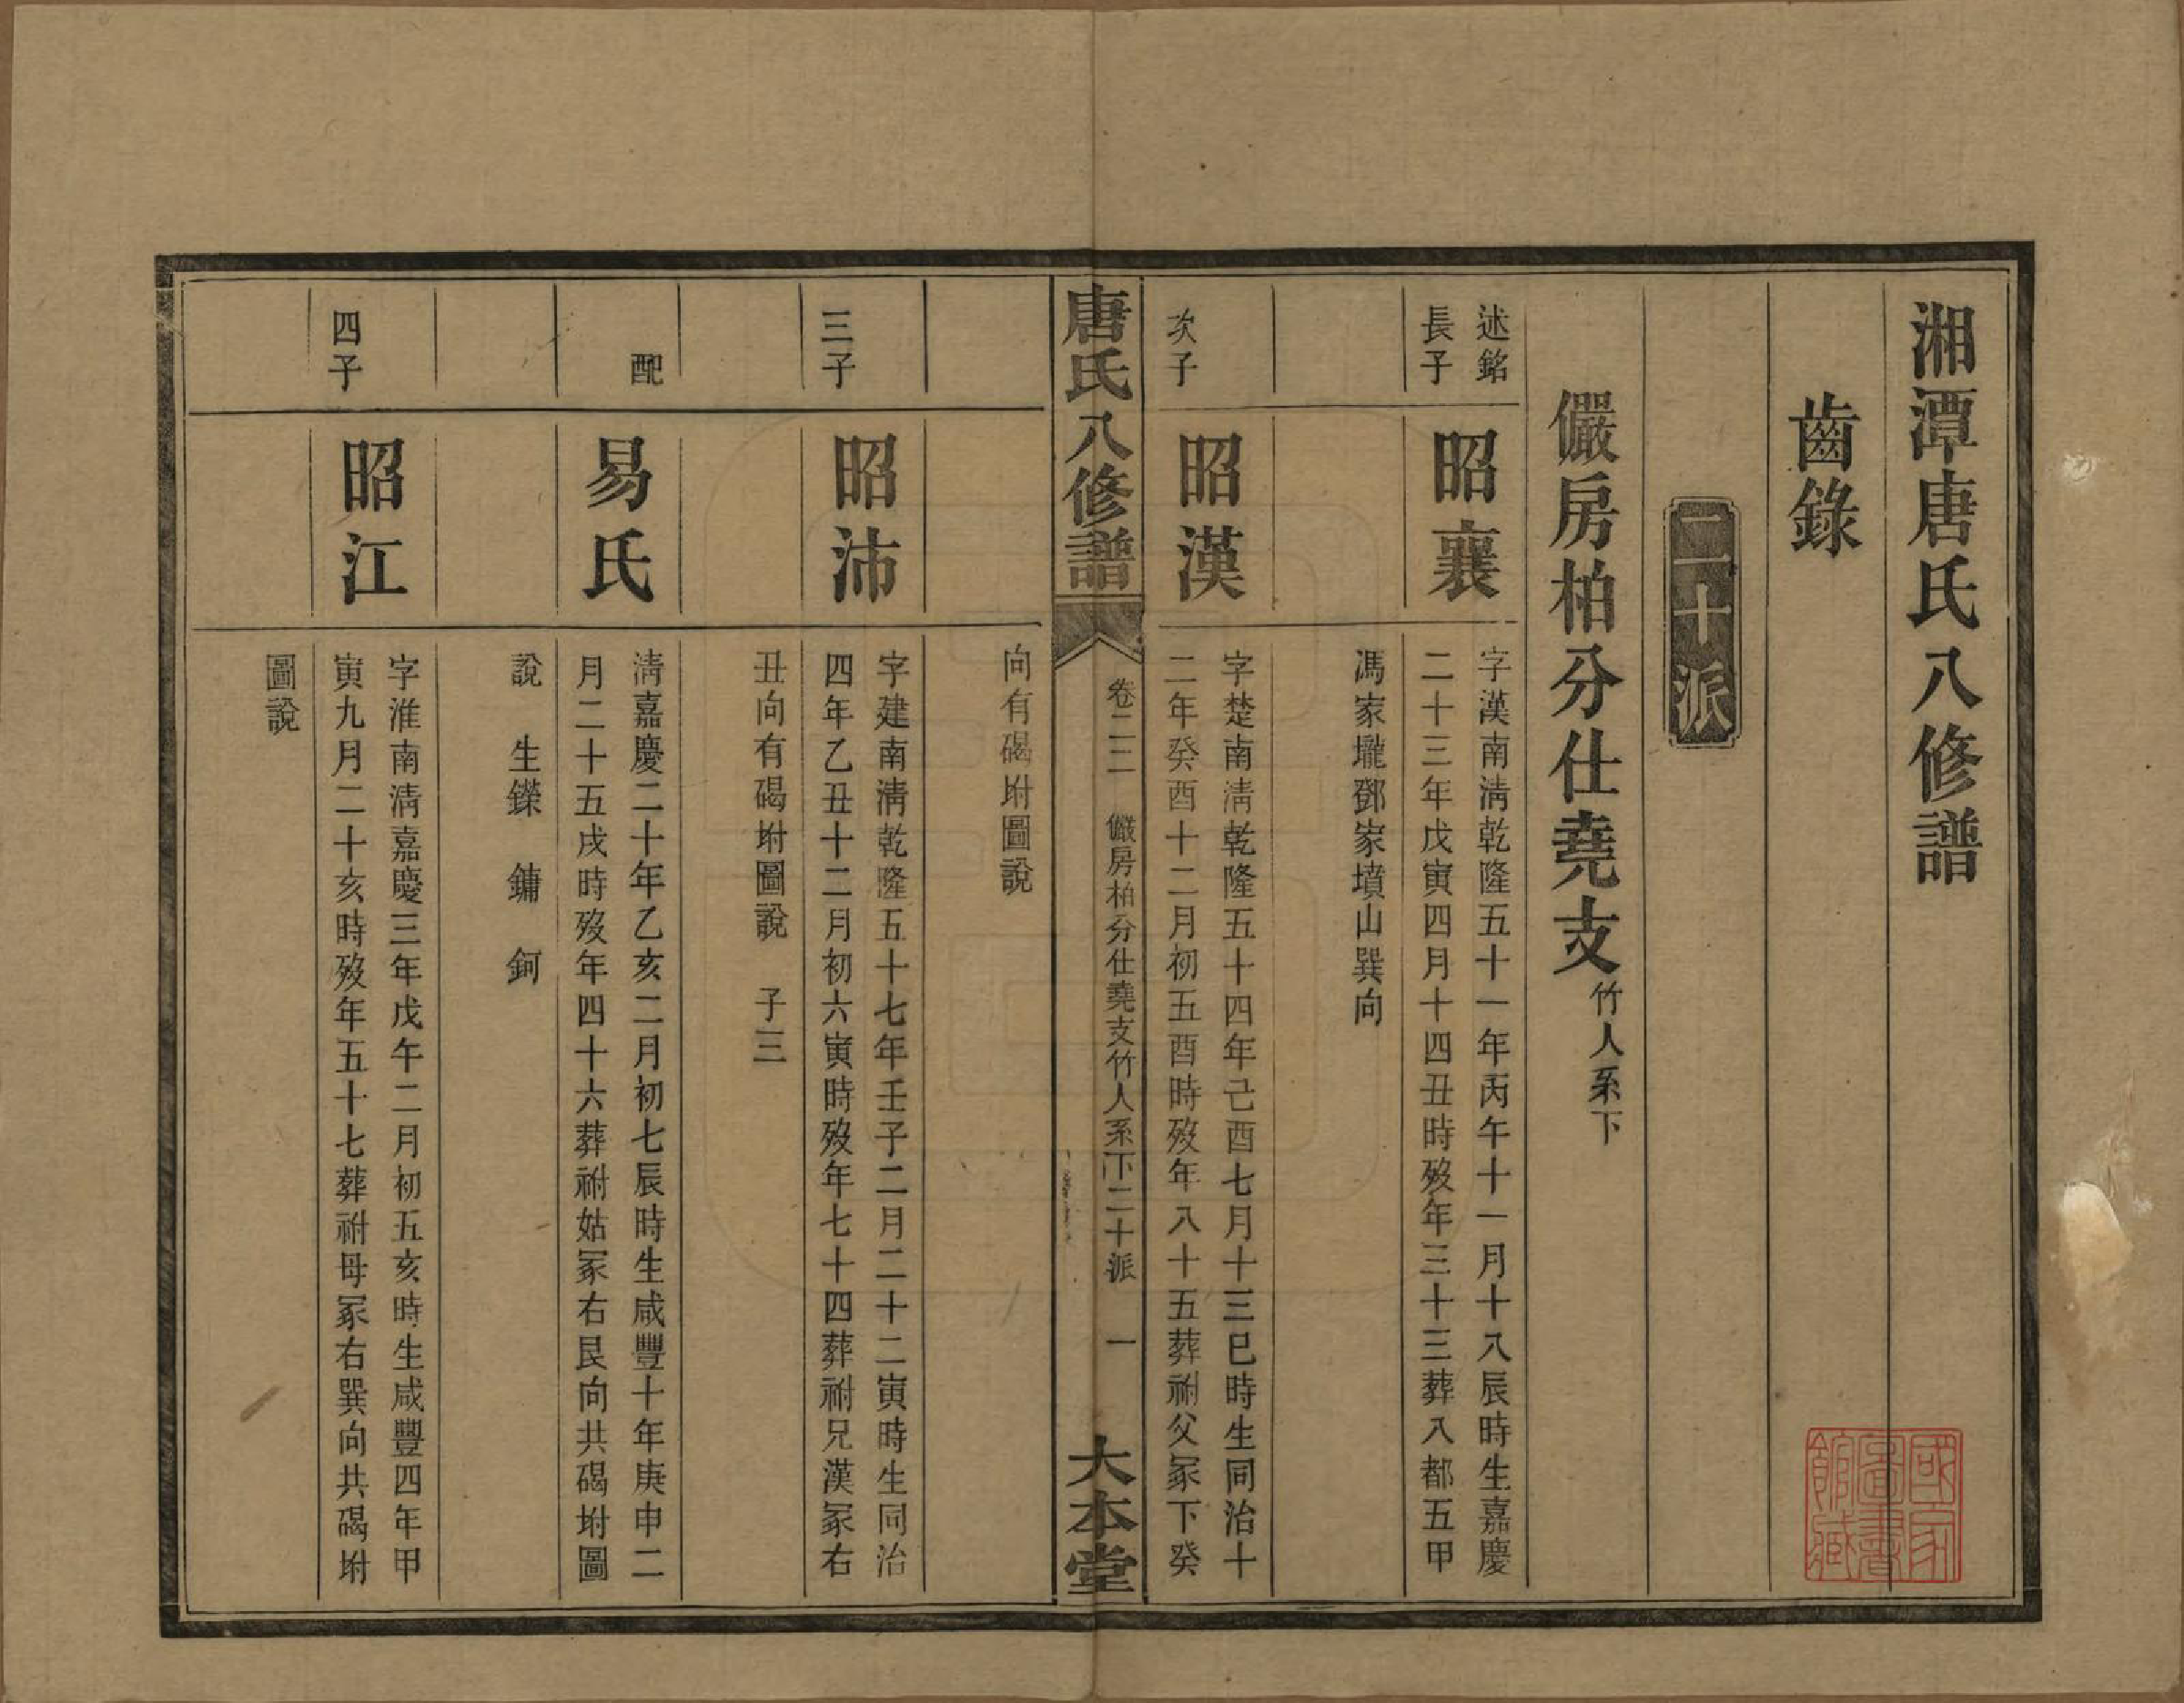 湘潭唐氏八修譜
齒錄
二十派
儼房柏分仕堯支竹人系下
述銘
長子
昭襄
字漢南清乾隆五十一年丙午十一月十八辰時生嘉慶
二十三年戊寅四月十四丑時歿年三十三葬八都五甲
馮家壠鄧家墳山巽向
次子
昭漢
字楚南清乾隆五十四年己酉七月十三巳時生同治十
二年癸酉十二月初五酉時歿年八十五葬祔父冢下癸
唐氏八修譜
卷二二 儼房柏分仕堯支竹人系下二十派 一
大本堂
向有碣坿圖說
三子
昭沛
字建南清乾隆五十七年壬子二月二十二寅時生同治
四年乙丑十二月初六寅時歿年七十四葬祔兄漢冢右
丑向有碣坿圖說 子三
配
易氏
清嘉慶二十年乙亥二月初七辰時生咸豐十年庚申二
月二十五戌時歿年四十六葬祔姑冢右艮向共碣坿圖
說 生鑅 鏞 鈳
四子
昭江
字淮南清嘉慶三年戊午二月初五亥時生咸豐四年甲
寅九月二十亥時歿年五十七葬祔母冢右巽向共碣坿
圖說
國家
圖書
館藏